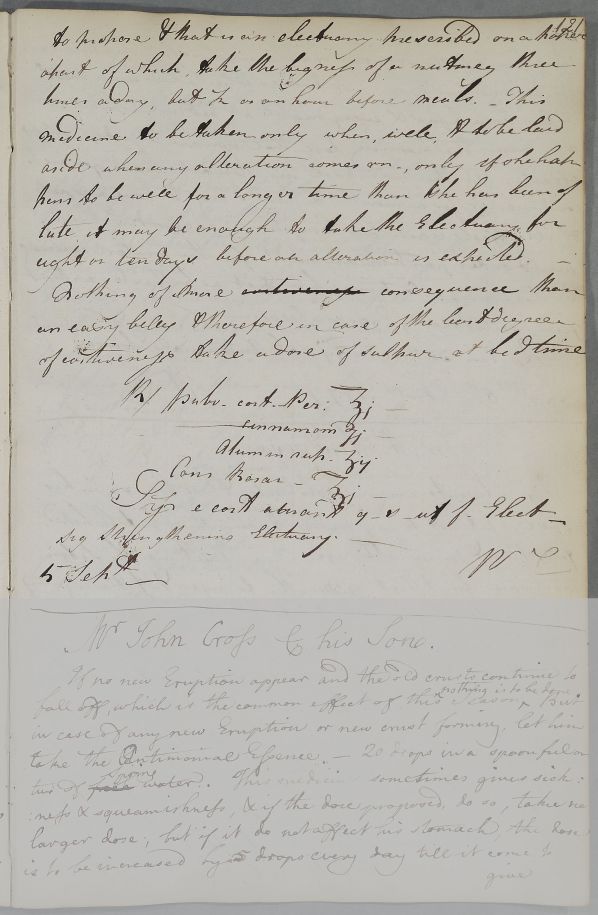 131
to propose & that is an electuary prescribed on a paper
apart of which, take the bigness of a nutmeg three
times a day, but ½ or an hour before meals. - This
medicine to be taken only when, well, & to be laid
aside when any alteration comes on -, only if she hap-
pens to be well for a longer time than she has been of
late it may be enough to take the Electuary for
eight or ten days before an alteration is expected. -
Nothing of more consequence than
an easy belly & therefore in case of the least degree
of costiveness take a dose of sulphur at bed time
R/ pulv. cort. Per: ℥j -
cinnamom ʒj
Alumin rup. ʒij
Cons Rosar - ℥j -
Syr e cort aurant q - s - ut f. Elect -
Sig Strengthening Electuary. -
5 Sept
Mr. John Cross & his Son.
If no new Eruption appear and the old crusts continue to
fall off which is the common effect of this Season, nothing is to be done But
in case of any new Eruption or new crust forming, let him
take the Antimonial Essence. - 20 drops in a spoonful or
two of water. This medicin sometimes gives sick:
:ness & squeamishness, & if the dose proposed, do so, take no
larger dose; but if it do not affect his stomach, the dose
is to be increased by 5 drops every day till it come to
give